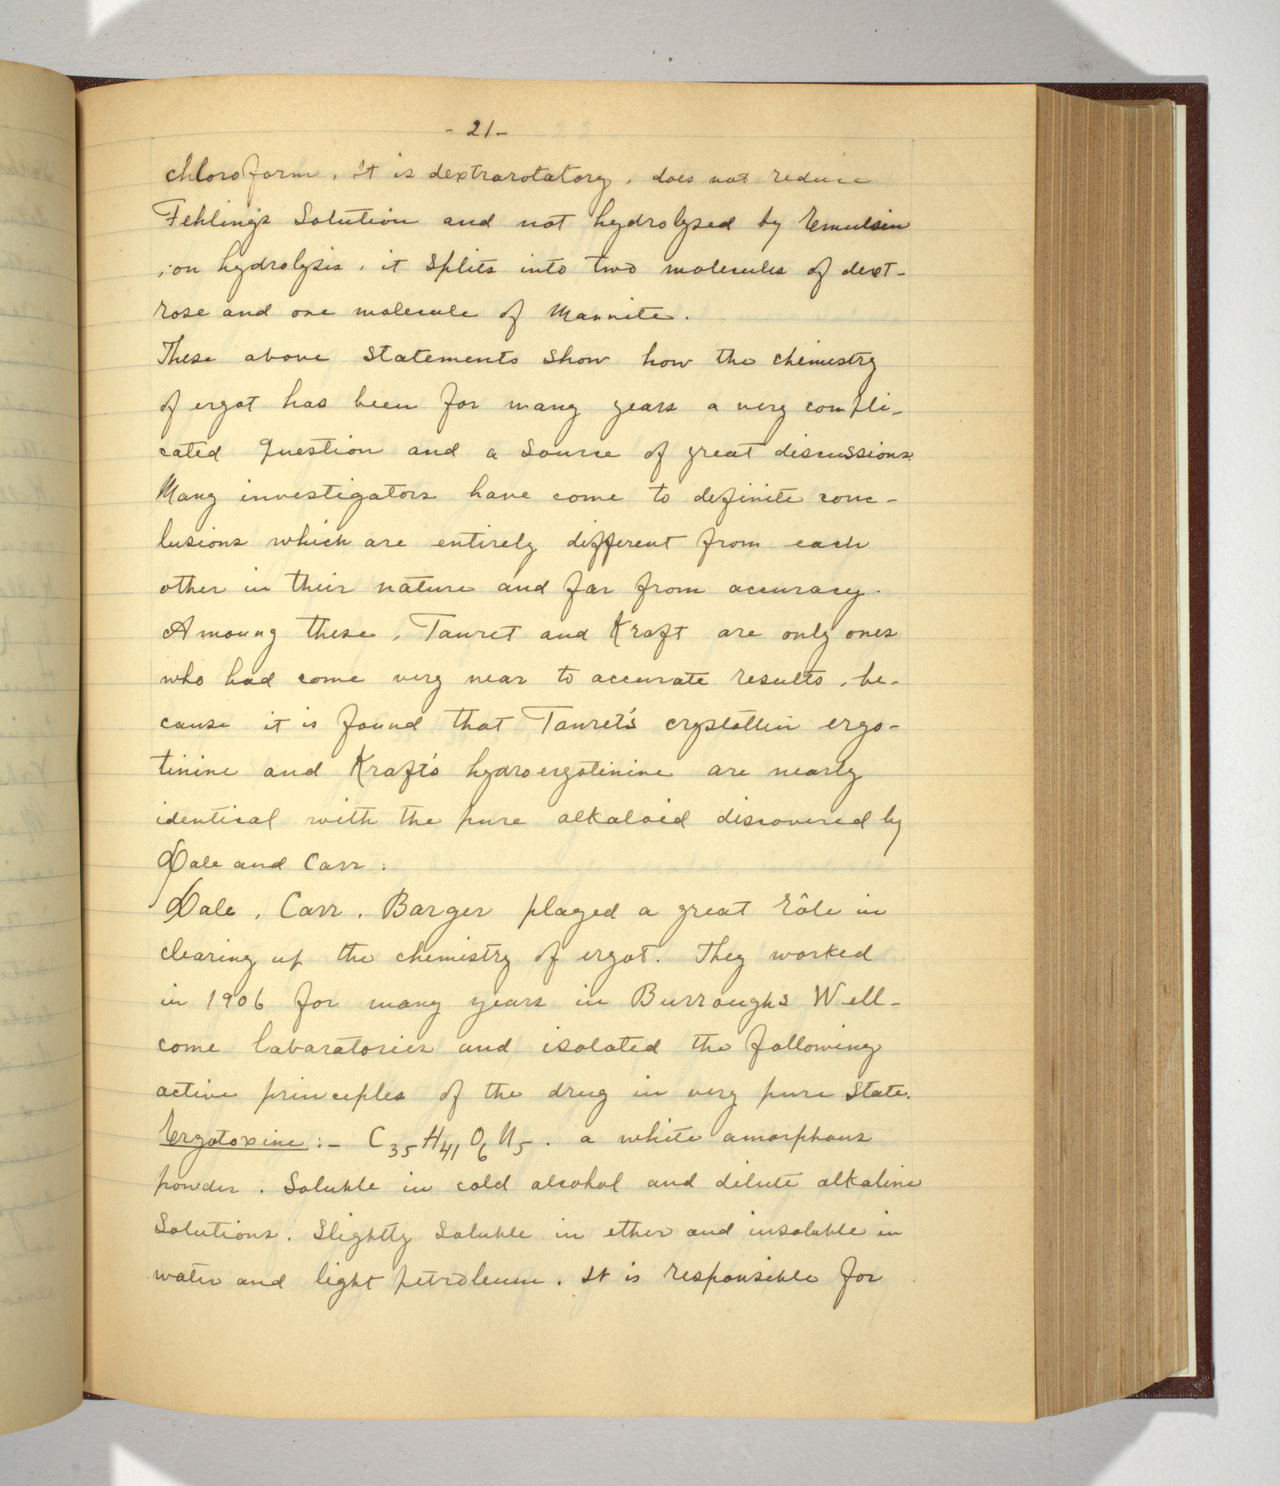 - 21 -
chloroform. It is dextrarotatory, does not reduce
Fehling's Solution and not hydrolysed by Emulsin
; on hydrolysis, it splits into two molecules of dext-
rose and one molecule of Mannite.
These above statements show how the chemistry
of ergot has been for many years a very compli-
cated question and a source of great discussions.
Many investigators have come to definite conc-
lusions which are entirely different from each
other in their nature and far from accuracy.
Amoung these, Tanret and Kraft are only ones
who had come very near to accurate results, be-
cause it is found that Tanret's crystallin ergo-
tinine and Kraft's hydroergotinine are nearly
identical with the pure alkaloid discovered by
Dale and Carr:
Dale, Carr, Barger played a great rôle in
clearing up the chemistry of ergot. They worked
in 1906 for many years in Burroughs Well-
come labaratories and isolated the following
active principles of the drug in very pure state.
Ergotoxine:- C35H41O6N5. a white amorphous
powder. Soluble in cold alcohol and dilute alkaline
Solutions. Slightly soluble in ether and insoluble in
water and light petroleum. It is responsible for